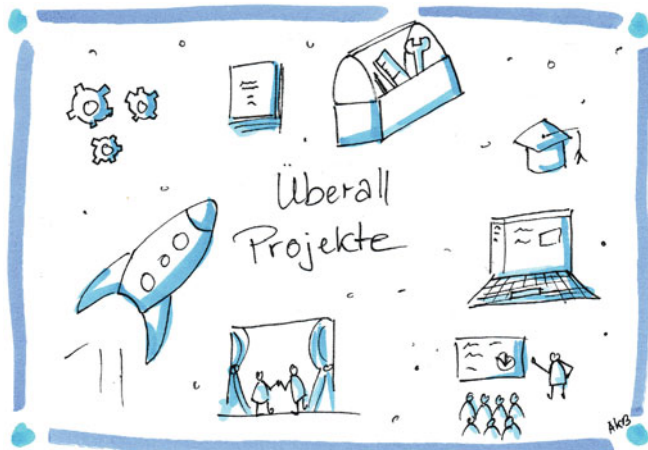 Überall
Projekte
AkB